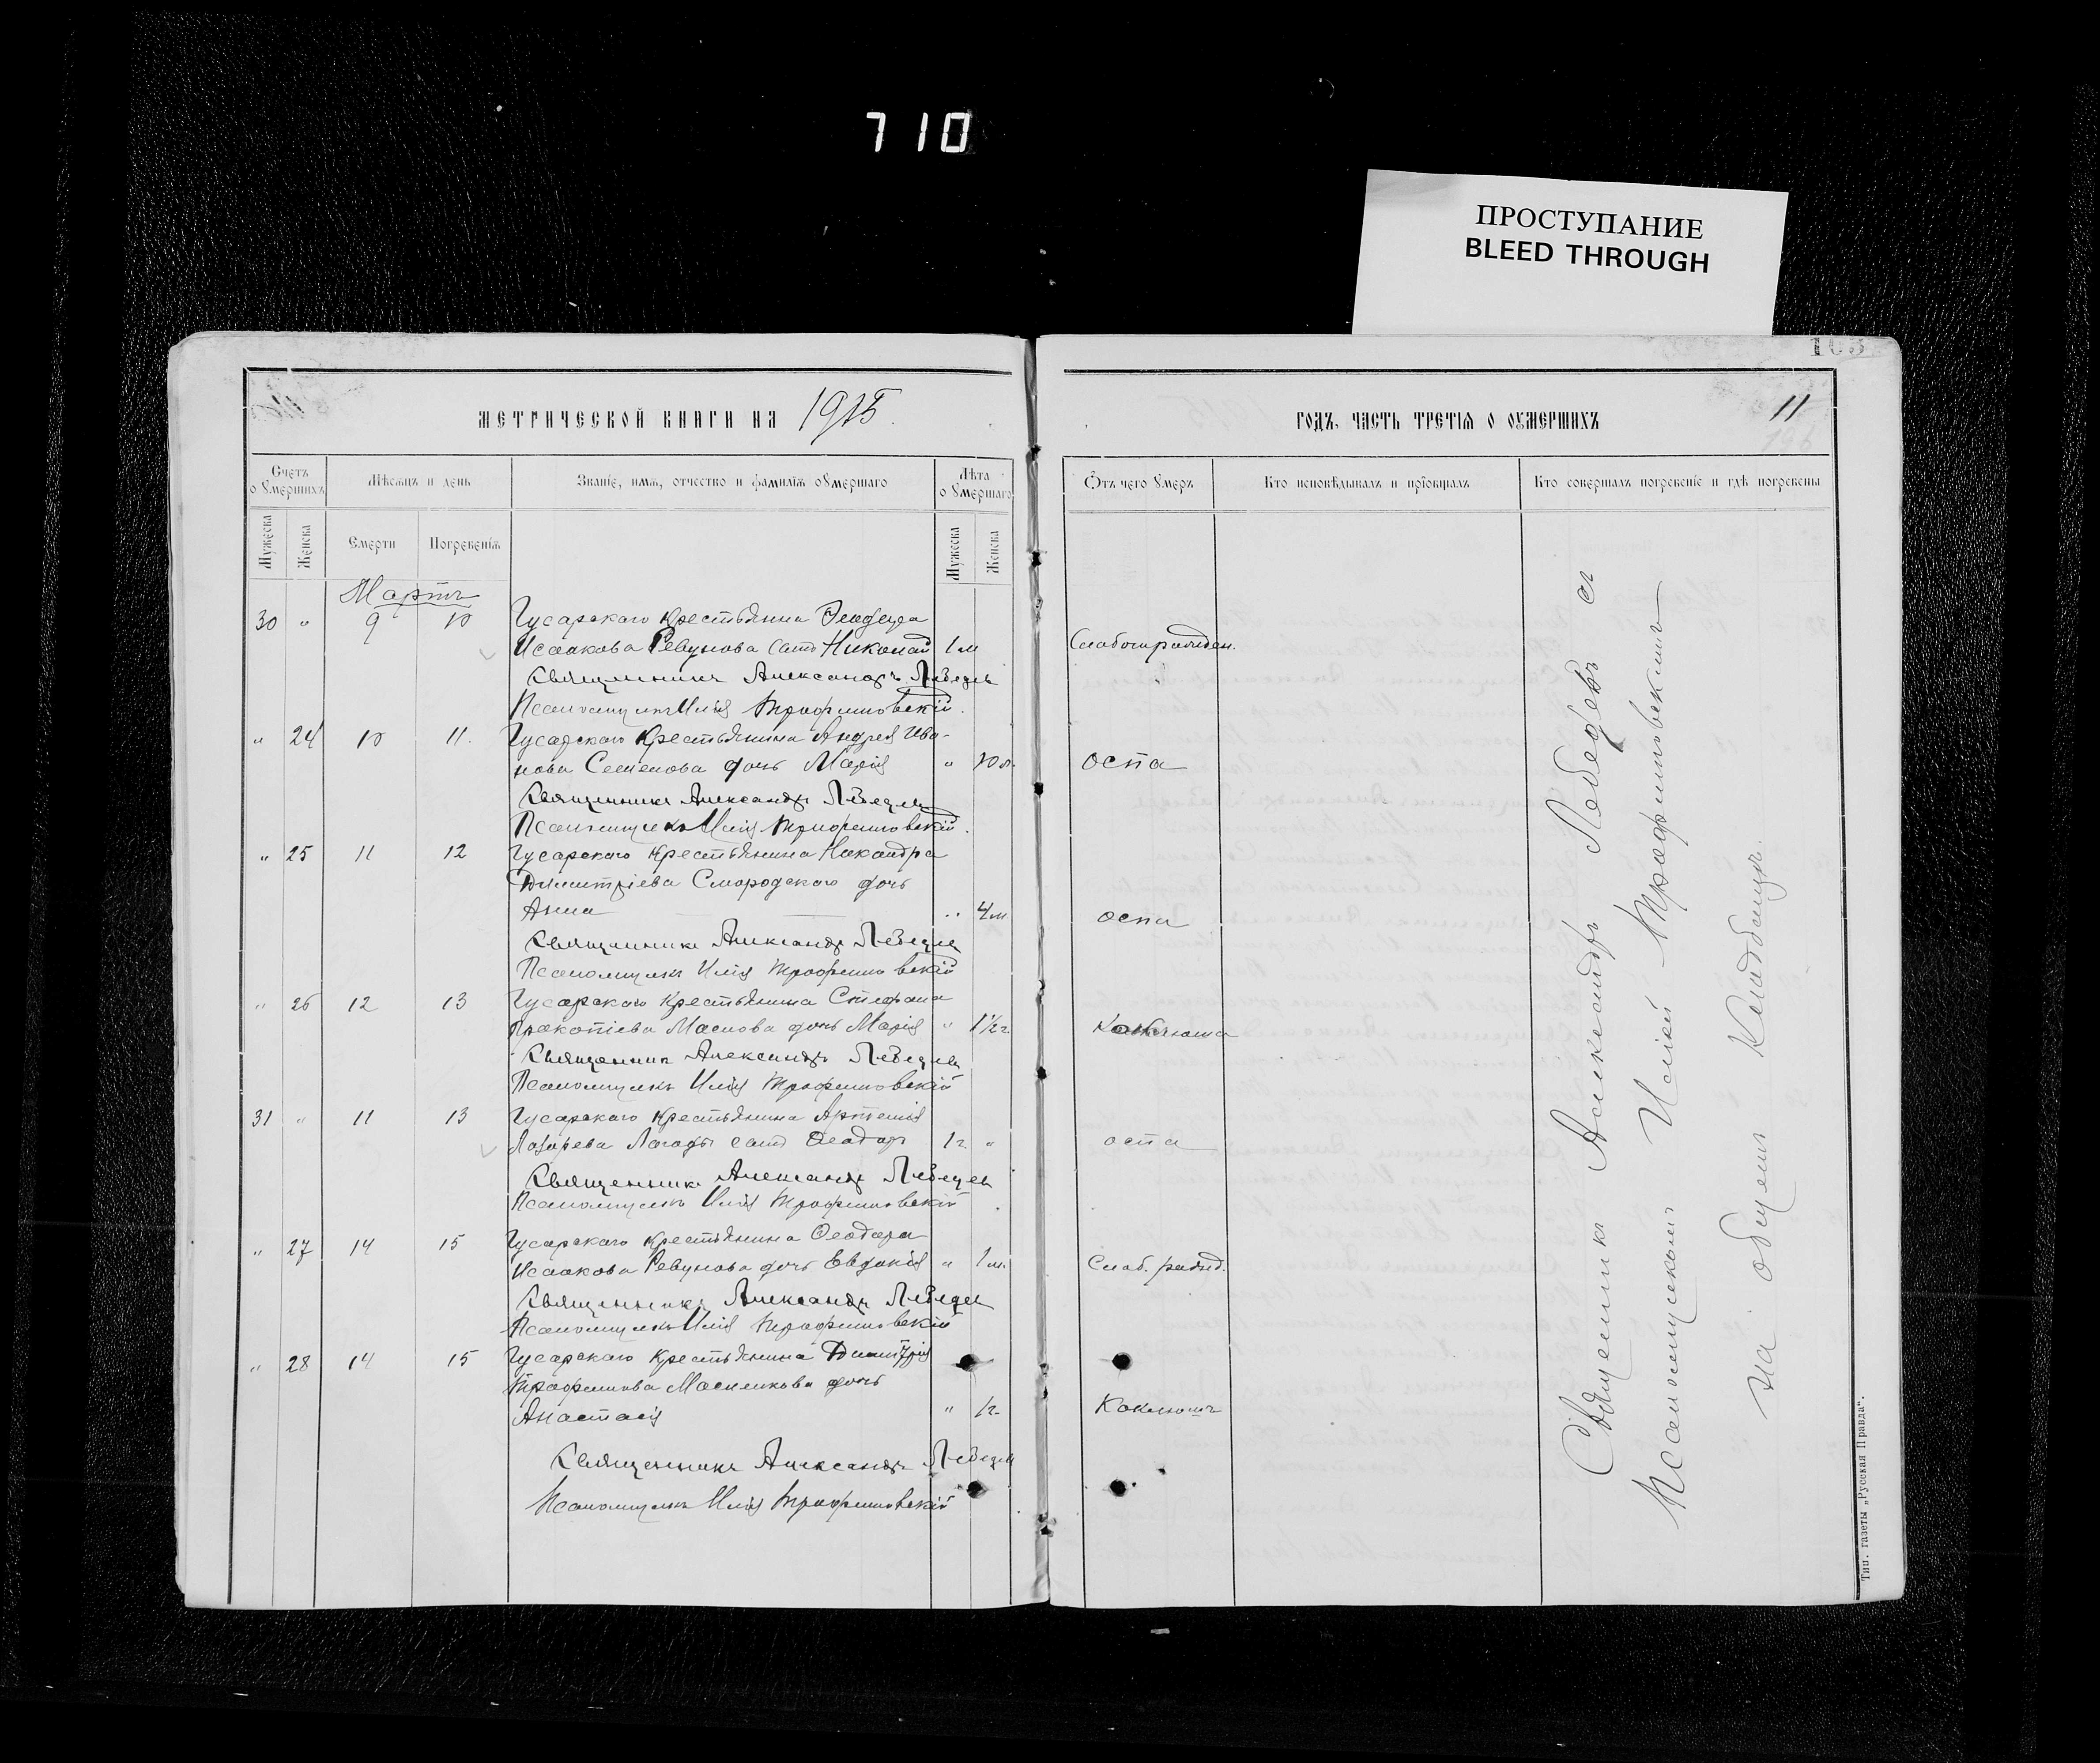 710
ПРОСТУПАНИЕ
BLEED THROUGH
103
11
МЕТРИЧЕСКОЙ КНИГИ НА 1915
ГОДЪ, ЧАСТЬ ТРЕТІѦ О ОУМЕРШИХЪ
Счетъ оумершихъ
Мѣсяцъ и день
Званіе, имя, отчество и фамилія оумершаго
Лѣта оумершаго
Отъ чего умеръ
Кто исповѣдывалъ и пріобщалъ
Кто совершалъ погребеніе и гдѣ погребены
Мужеска
Женска
Смерти
Погребенія
Мужеска
Женска
Мартъ
30 " 9 10 Гусарскаго крестьянина Феодора
Исаакова Ревунова сынъ Николай 1 м Слабо рожден.
Священникъ Александръ Лебедев
Псаломщикъ Илія Трофимовскій
" 24 10 11 Гусарскаго крестьянина Андрея Ива-
нова Семенова дочь Марія " 10 л. оспа
Священникъ Александръ Лебедев
Псаломщикъ Илія Трофимовскій
" 25 11 12 Гусарскаго крестьянина Никандра
Димитріева Смородскаго дочь
Анна " 4 м оспа
Священникъ Александръ Лебедев
Псаломщикъ Илія Трофимовскій
" 26 12 13 Гусарскаго крестьянина Стефана
Прокопіева Маслова дочь Марія " 1½ г Коклюша
Священник Александръ Лебедев
Псаломщикъ Илія Трофимовскій
31 " 11 13 Гусарскаго крестьянина Артемія
Лазарева сынъ Феодоръ 1 г. " оспа
Священникъ Александръ Лебедев
Псаломщикъ Илія Трофимовскій
" 27 14 15 Гусарскаго крестьянина Феодора
Исаакова Ревунова дочь Евдокія " 1 м. Слаб. рожд.
Священникъ Александръ Лебедев
Псаломщикъ Илія Трофимовскій
" 28 14 15 Гусарскаго крестьянина Димитрія
Трофимова Масленкова дочь
Анастасія " 1 г. Коклюшъ
Священникъ Александръ Лебедев
Псаломщикъ Илія Трофимовскій
Священникъ Александръ Лебедевъ съ
Псаломщикомъ Иліей Трофимовскимъ
на общемъ кладбищѣ.
Тип. газеты „Русская Правда".